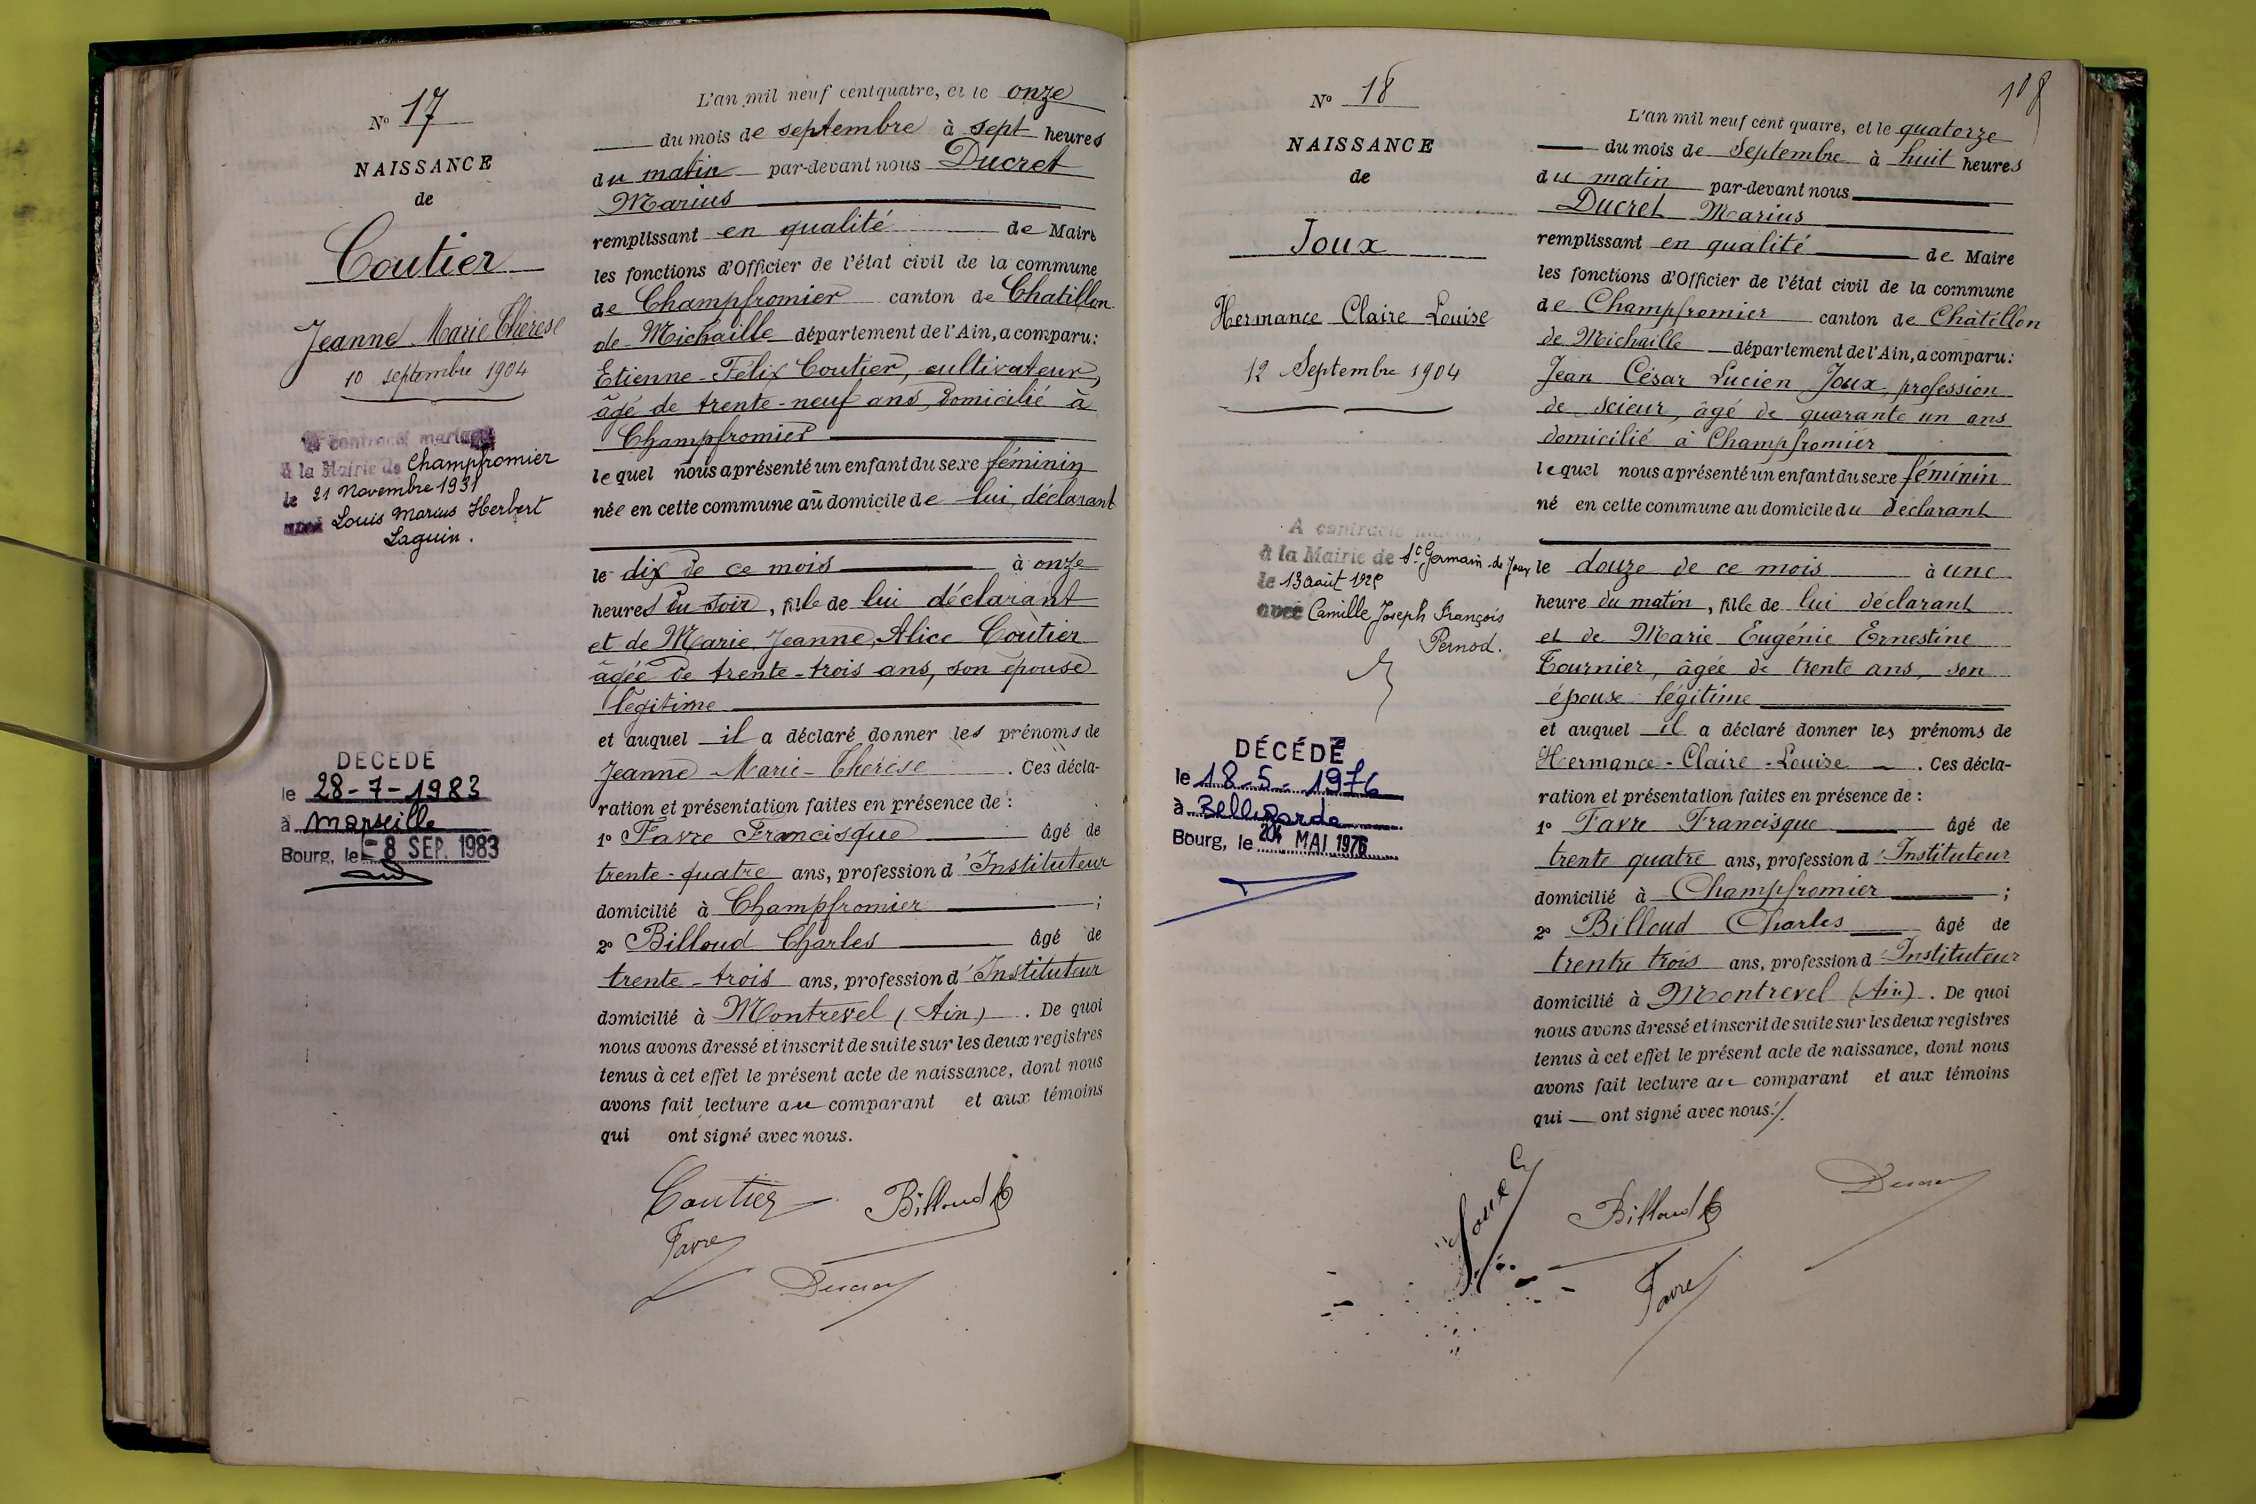 Nº 17
NAISSANCE
de
Coutier
Jeanne Marie Thérèse
10 septembre 1904
A contracté mariage
à la Mairie de Champfromier
le 21 Novembre 1931
avec Louis Marius Herbert
Laguin.
DÉCÉDÉ
le 28-7-1983
à Marseille
Bourg, le -8 SEP. 1983
L'an mil neuf cent quatre, et le onze
du mois de septembre à sept heures
du matin par-devant nous Ducret
Marius
remplissant en qualité de Maire
les fonctions d'Officier de l'état civil de la commune
de Champfromier canton de Chatillon
de Michaille département de l'Ain, a comparu:
Etienne-Félix Coutier, cultivateur,
âgé de trente-neuf ans, domicilié à
Champfromier
lequel nous a présenté un enfant du sexe féminin
née en cette commune au domicile de lui, déclarant
le dix de ce mois à onze
heures du soir, fille de lui déclarant
et de Marie Jeanne Alice Coutier
âgée de trente-trois ans, son épouse
légitime
et auquel il a déclaré donner les prénoms de
Jeanne-Marie-Thérèse. Ces décla-
ration et présentation faites en présence de :
1º Favre Francisque âgé de
trente-quatre ans, profession d'Instituteur
domicilié à Champfromier ;
2º Billoud Charles âgé de
trente-trois ans, profession d'Instituteur
domicilié à Montrevel (Ain). De quoi
nous avons dressé et inscrit de suite sur les deux registres
tenus à cet effet le présent acte de naissance, dont nous
avons fait lecture au comparant et aux témoins
qui ont signé avec nous.
Coutier Billoud
Favre
Ducret
108
Nº 18
NAISSANCE
de
Joux
Hermance Claire Louise
12 Septembre 1904
A contracté
à la Mairie de St Germain de Joux
le 13 août
avec Camille Joseph François
Pernod.
DÉCÉDÉE
le 18-5-1976
à Bellegarde
Bourg, le MAI 1976
L'an mil neuf cent quatre, et le quatorze
du mois de Septembre à huit heures
du matin par-devant nous
Ducret Marius
remplissant en qualité de Maire
les fonctions d'Officier de l'état civil de la commune
de Champfromier canton de Châtillon
de Michaille département de l'Ain, a comparu:
Jean César Lucien Joux, profession
de scieur, âgé de quarante un ans
domicilié à Champfromier
lequel nous a présenté un enfant du sexe féminin
né en cette commune au domicile du déclarant
le douze de ce mois à une
heure du matin, fille de lui déclarant
et de Marie Eugénie Ernestine
Tournier, âgée de trente ans, son
épouse légitime
et auquel il a déclaré donner les prénoms de
Hermance-Claire-Louise. Ces décla-
ration et présentation faites en présence de :
1º Favre Francisque âgé de
trente quatre ans, profession d'Instituteur
domicilié à Champfromier ;
2º Billoud Charles âgé de
trente trois ans, profession d'Instituteur
domicilié à Montrevel (Ain). De quoi
nous avons dressé et inscrit de suite sur les deux registres
tenus à cet effet le présent acte de naissance, dont nous
avons fait lecture au comparant et aux témoins
qui ont signé avec nous./.
Joux Billoud Ducret
Favre